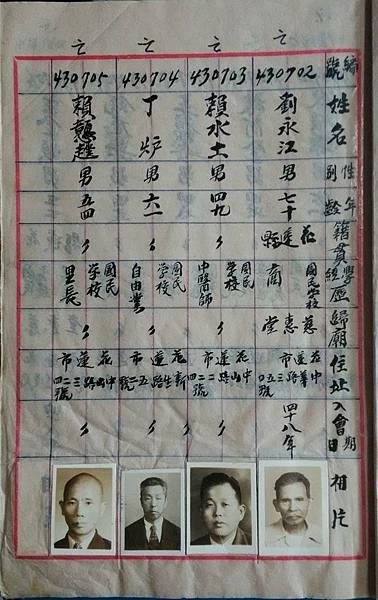 編號
姓名
性別
年齡
籍貫
學經歷
歸廟
住址
入會日期
相片
亡
430702
劉永江
男
七十
花蓮縣
國民學校
商
慈惠堂
花蓮市中華路三〇五
四十八年
亡
430703
賴水土
男
四九
〃
國民學校
中醫師
〃
花蓮市中山路二二四號
〃
亡
430704
丁炉
男
六一
〃
國民學校
自由業
〃
花蓮市新生路五一二號
〃
亡
430705
男
五四
〃
國民學校
里長
〃
花蓮市中山路三二二號
〃